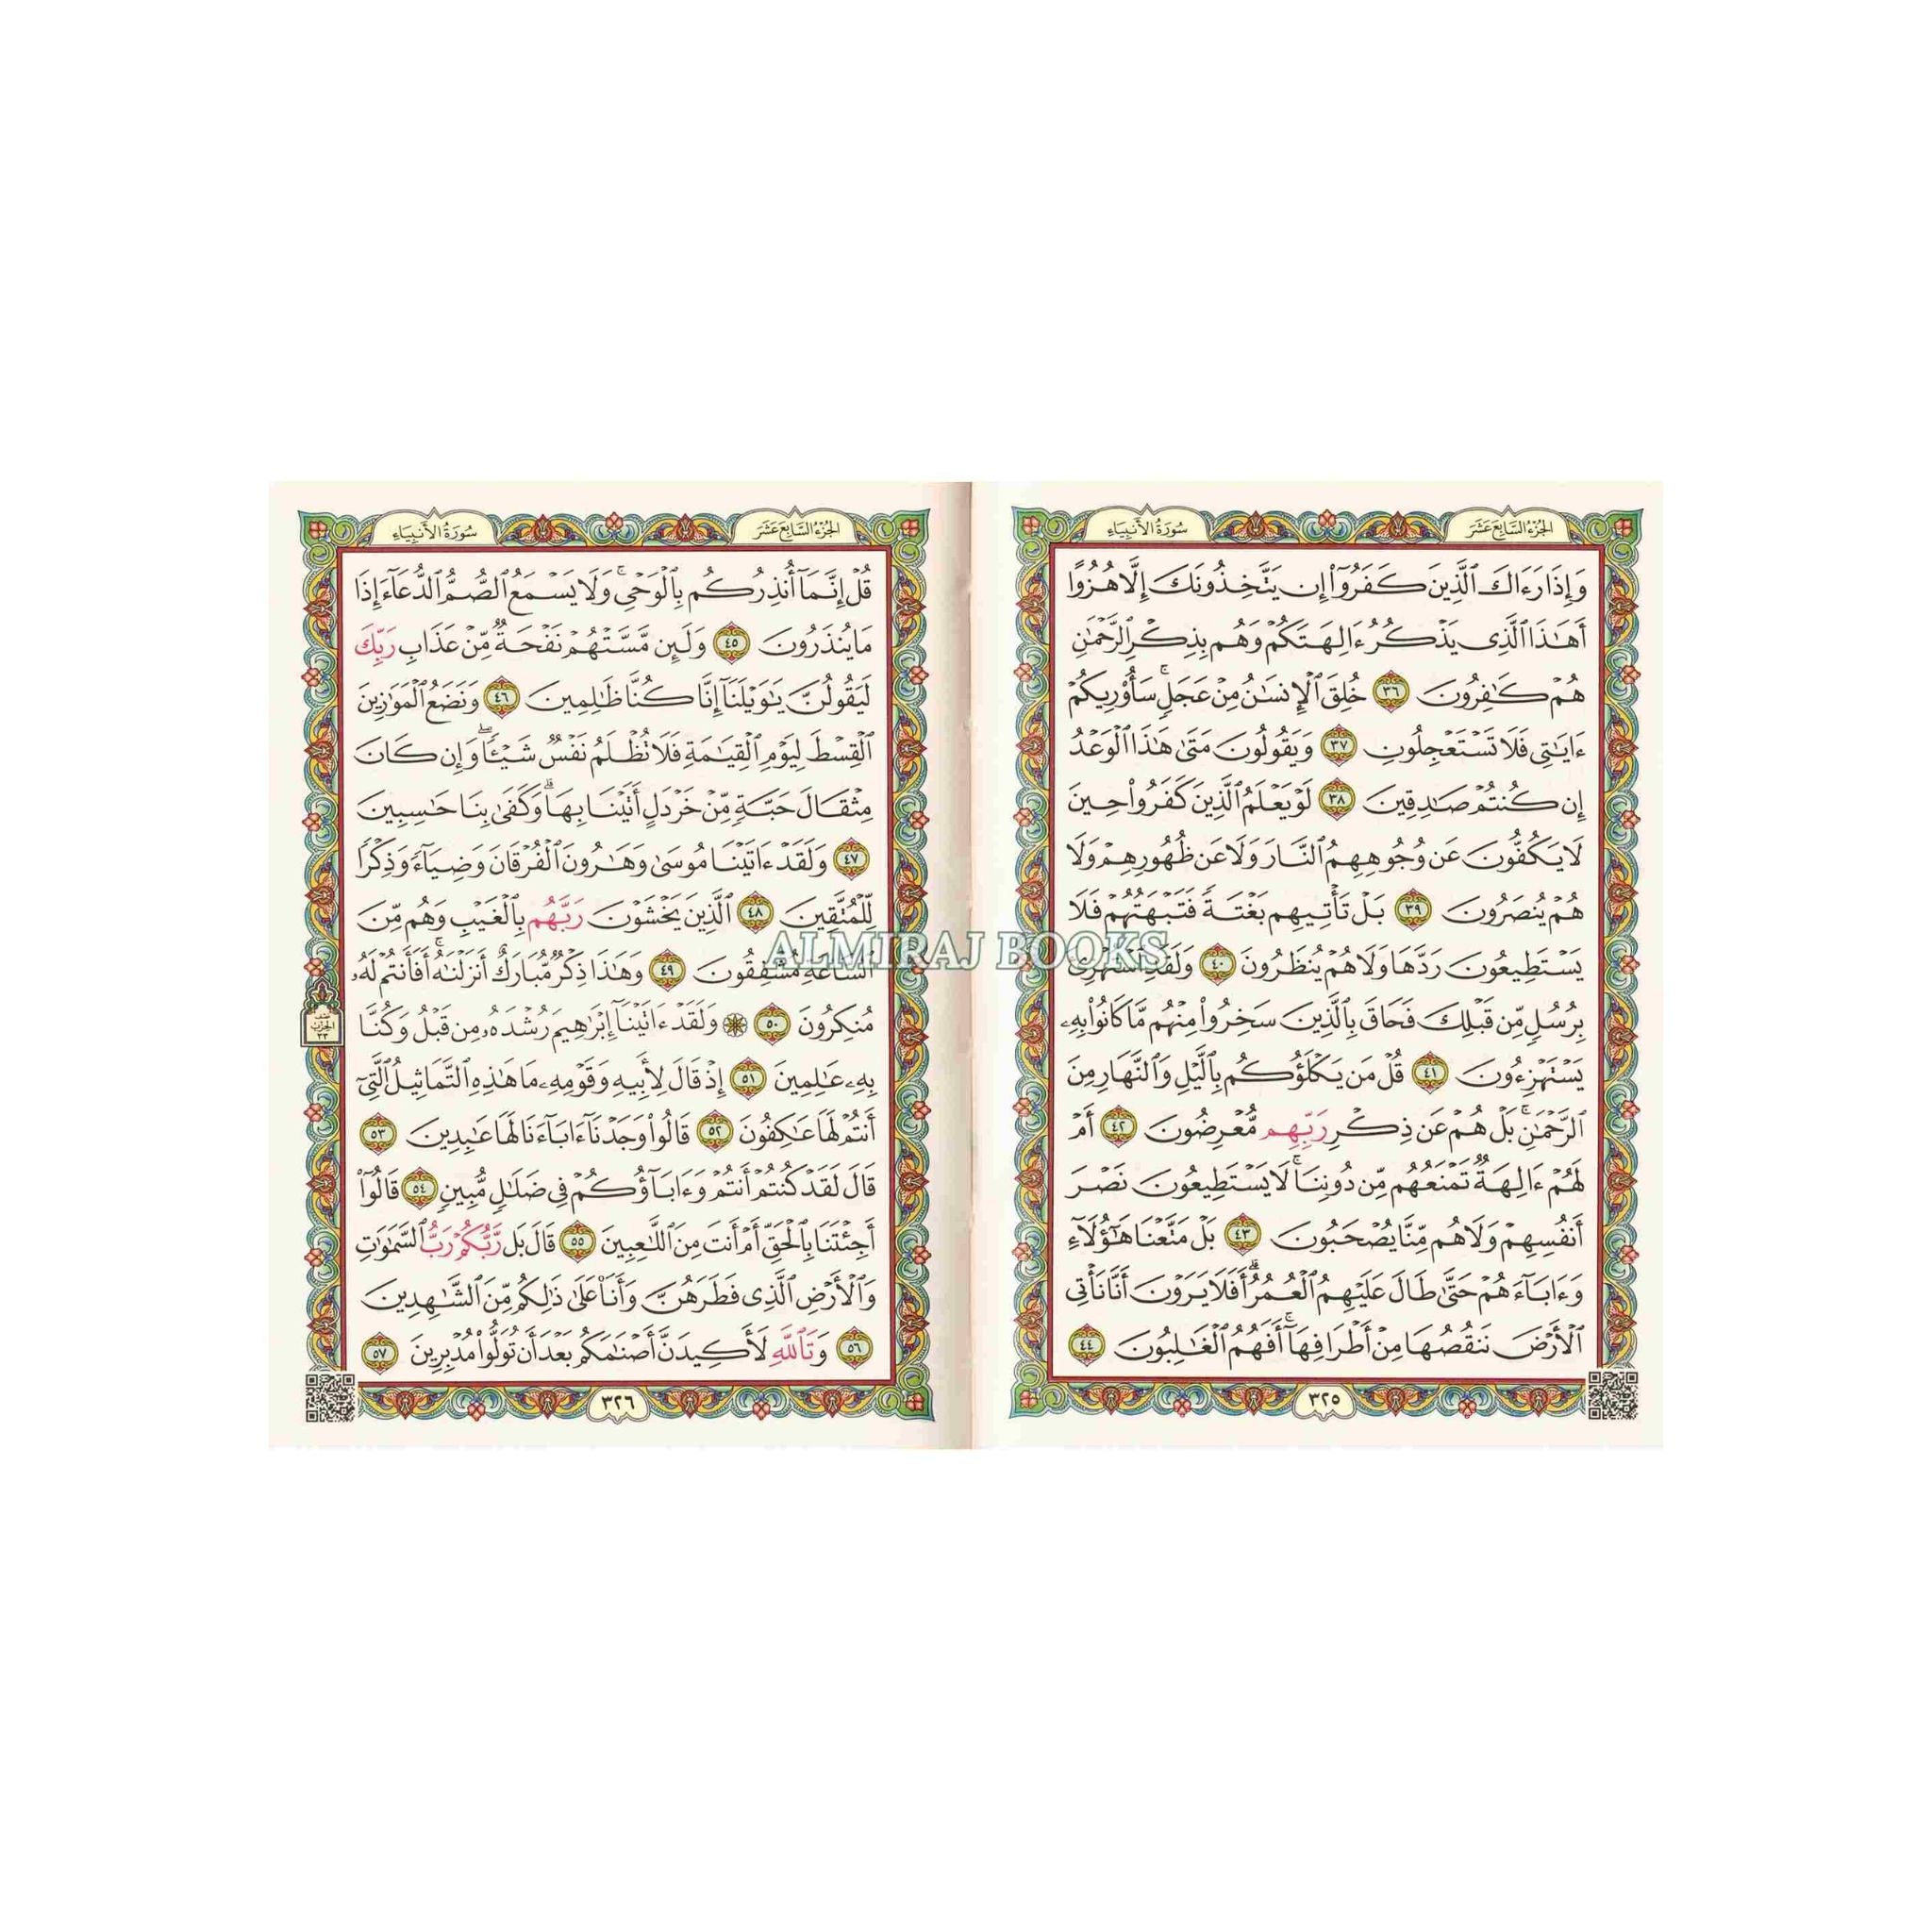 الجزء السابع عشر
سورة الأنبياء
وَإِذَا رَءَاكَ ٱلَّذِينَ كَفَرُوٓاْ إِن يَتَّخِذُونَكَ إِلَّا هُزُوًا
أَهَٰذَا ٱلَّذِي يَذۡكُرُ ءَالِهَتَكُمۡ وَهُم بِذِكۡرِ ٱلرَّحۡمَٰنِ
هُمۡ كَٰفِرُونَ ٣٦ خُلِقَ ٱلۡإِنسَٰنُ مِنۡ عَجَلٖۚ سَأُوْرِيكُمۡ
ءَايَٰتِي فَلَا تَسۡتَعۡجِلُونِ ٣٧ وَيَقُولُونَ مَتَىٰ هَٰذَا ٱلۡوَعۡدُ
إِن كُنتُمۡ صَٰدِقِينَ ٣٨ لَوۡ يَعۡلَمُ ٱلَّذِينَ كَفَرُواْ حِينَ
لَا يَكُفُّونَ عَن وُجُوهِهِمُ ٱلنَّارَ وَلَا عَن ظُهُورِهِمۡ وَلَا
هُمۡ يُنصَرُونَ ٣٩ بَلۡ تَأۡتِيهِم بَغۡتَةٗ فَتَبۡهَتُهُمۡ فَلَا
يَسۡتَطِيعُونَ رَدَّهَا وَلَا هُمۡ يُنظَرُونَ ٤٠ وَلَقَدِ ٱسۡتُهۡزِئَ
بِرُسُلٖ مِّن قَبۡلِكَ فَحَاقَ بِٱلَّذِينَ سَخِرُواْ مِنۡهُم مَّا كَانُواْ بِهِۦ
يَسۡتَهۡزِءُونَ ٤١ قُلۡ مَن يَكۡلَؤُكُم بِٱلَّيۡلِ وَٱلنَّهَارِ مِنَ
ٱلرَّحۡمَٰنِۚ بَلۡ هُمۡ عَن ذِكۡرِ رَبِّهِم مُّعۡرِضُونَ ٤٢ أَمۡ
لَهُمۡ ءَالِهَةٞ تَمۡنَعُهُم مِّن دُونِنَاۚ لَا يَسۡتَطِيعُونَ نَصۡرَ
أَنفُسِهِمۡ وَلَا هُم مِّنَّا يُصۡحَبُونَ ٤٣ بَلۡ مَتَّعۡنَا هَٰٓؤُلَآءِ
وَءَابَآءَهُمۡ حَتَّىٰ طَالَ عَلَيۡهِمُ ٱلۡعُمُرُۗ أَفَلَا يَرَوۡنَ أَنَّا نَأۡتِي
ٱلۡأَرۡضَ نَنقُصُهَا مِنۡ أَطۡرَافِهَآۚ أَفَهُمُ ٱلۡغَٰلِبُونَ ٤٤
٣٢٥
الجزء السابع عشر
سورة الأنبياء
قُلۡ إِنَّمَآ أُنذِرُكُم بِٱلۡوَحۡيِۚ وَلَا يَسۡمَعُ ٱلصُّمُّ ٱلدُّعَآءَ إِذَا
مَا يُنذَرُونَ ٤٥ وَلَئِن مَّسَّتۡهُمۡ نَفۡحَةٞ مِّنۡ عَذَابِ رَبِّكَ
لَيَقُولُنَّ يَٰوَيۡلَنَآ إِنَّا كُنَّا ظَٰلِمِينَ ٤٦ وَنَضَعُ ٱلۡمَوَٰزِينَ
ٱلۡقِسۡطَ لِيَوۡمِ ٱلۡقِيَٰمَةِ فَلَا تُظۡلَمُ نَفۡسٞ شَيۡـٔٗاۖ وَإِن كَانَ
مِثۡقَالَ حَبَّةٖ مِّنۡ خَرۡدَلٍ أَتَيۡنَا بِهَاۗ وَكَفَىٰ بِنَا حَٰسِبِينَ
٤٧ وَلَقَدۡ ءَاتَيۡنَا مُوسَىٰ وَهَٰرُونَ ٱلۡفُرۡقَانَ وَضِيَآءٗ وَذِكۡرٗا
لِّلۡمُتَّقِينَ ٤٨ ٱلَّذِينَ يَخۡشَوۡنَ رَبَّهُم بِٱلۡغَيۡبِ وَهُم مِّنَ
ٱلسَّاعَةِ مُشۡفِقُونَ ٤٩ وَهَٰذَا ذِكۡرٞ مُّبَارَكٌ أَنزَلۡنَٰهُۚ أَفَأَنتُمۡ لَهُۥ
مُنكِرُونَ ٥٠ ۞ وَلَقَدۡ ءَاتَيۡنَآ إِبۡرَٰهِيمَ رُشۡدَهُۥ مِن قَبۡلُ وَكُنَّا
بِهِۦ عَٰلِمِينَ ٥١ إِذۡ قَالَ لِأَبِيهِ وَقَوۡمِهِۦ مَا هَٰذِهِ ٱلتَّمَاثِيلُ ٱلَّتِيٓ
أَنتُمۡ لَهَا عَٰكِفُونَ ٥٢ قَالُواْ وَجَدۡنَآ ءَابَآءَنَا لَهَا عَٰبِدِينَ ٥٣
قَالَ لَقَدۡ كُنتُمۡ أَنتُمۡ وَءَابَآؤُكُمۡ فِي ضَلَٰلٖ مُّبِينٖ ٥٤ قَالُوٓاْ
أَجِئۡتَنَا بِٱلۡحَقِّ أَمۡ أَنتَ مِنَ ٱللَّٰعِبِينَ ٥٥ قَالَ بَل رَّبُّكُمۡ رَبُّ ٱلسَّمَٰوَٰتِ
وَٱلۡأَرۡضِ ٱلَّذِي فَطَرَهُنَّ وَأَنَا۠ عَلَىٰ ذَٰلِكُم مِّنَ ٱلشَّٰهِدِينَ
٥٦ وَتَٱللَّهِ لَأَكِيدَنَّ أَصۡنَٰمَكُم بَعۡدَ أَن تُوَلُّواْ مُدۡبِرِينَ ٥٧
نصف
الحزب
٣٣
٣٢٦
ALMIRAJ BOOKS